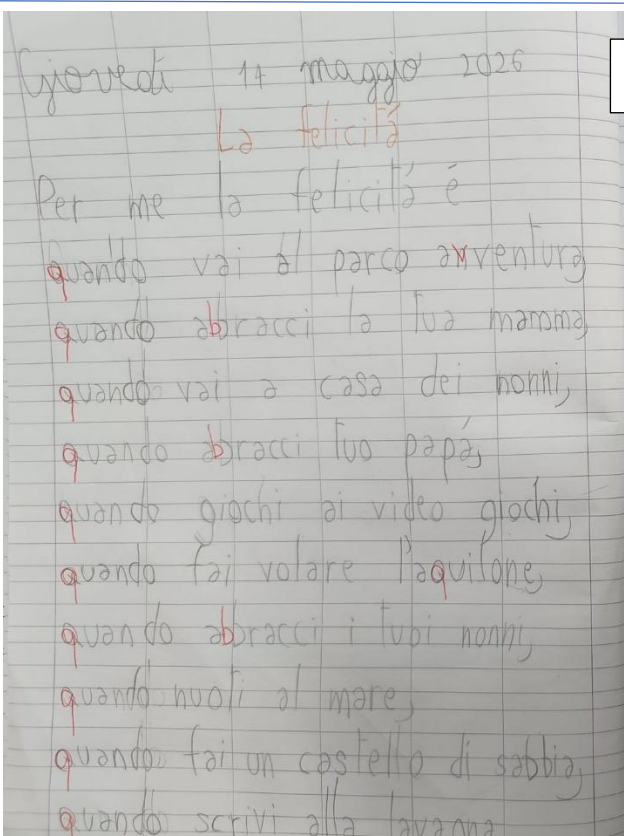 Giovedì 14 maggio 2026
La felicità
Per me la felicità è
quando vai al parco avventura
quando abbracci la tua mamma,
quando vai a casa dei nonni,
quando abbracci tuo papà,
quando giochi ai video giochi,
quando fai volare l'aquilone,
quando abbracci i tuoi nonni,
quando nuoti al mare,
quando fai un castello di sabbia,
quando scrivi alla lavagna